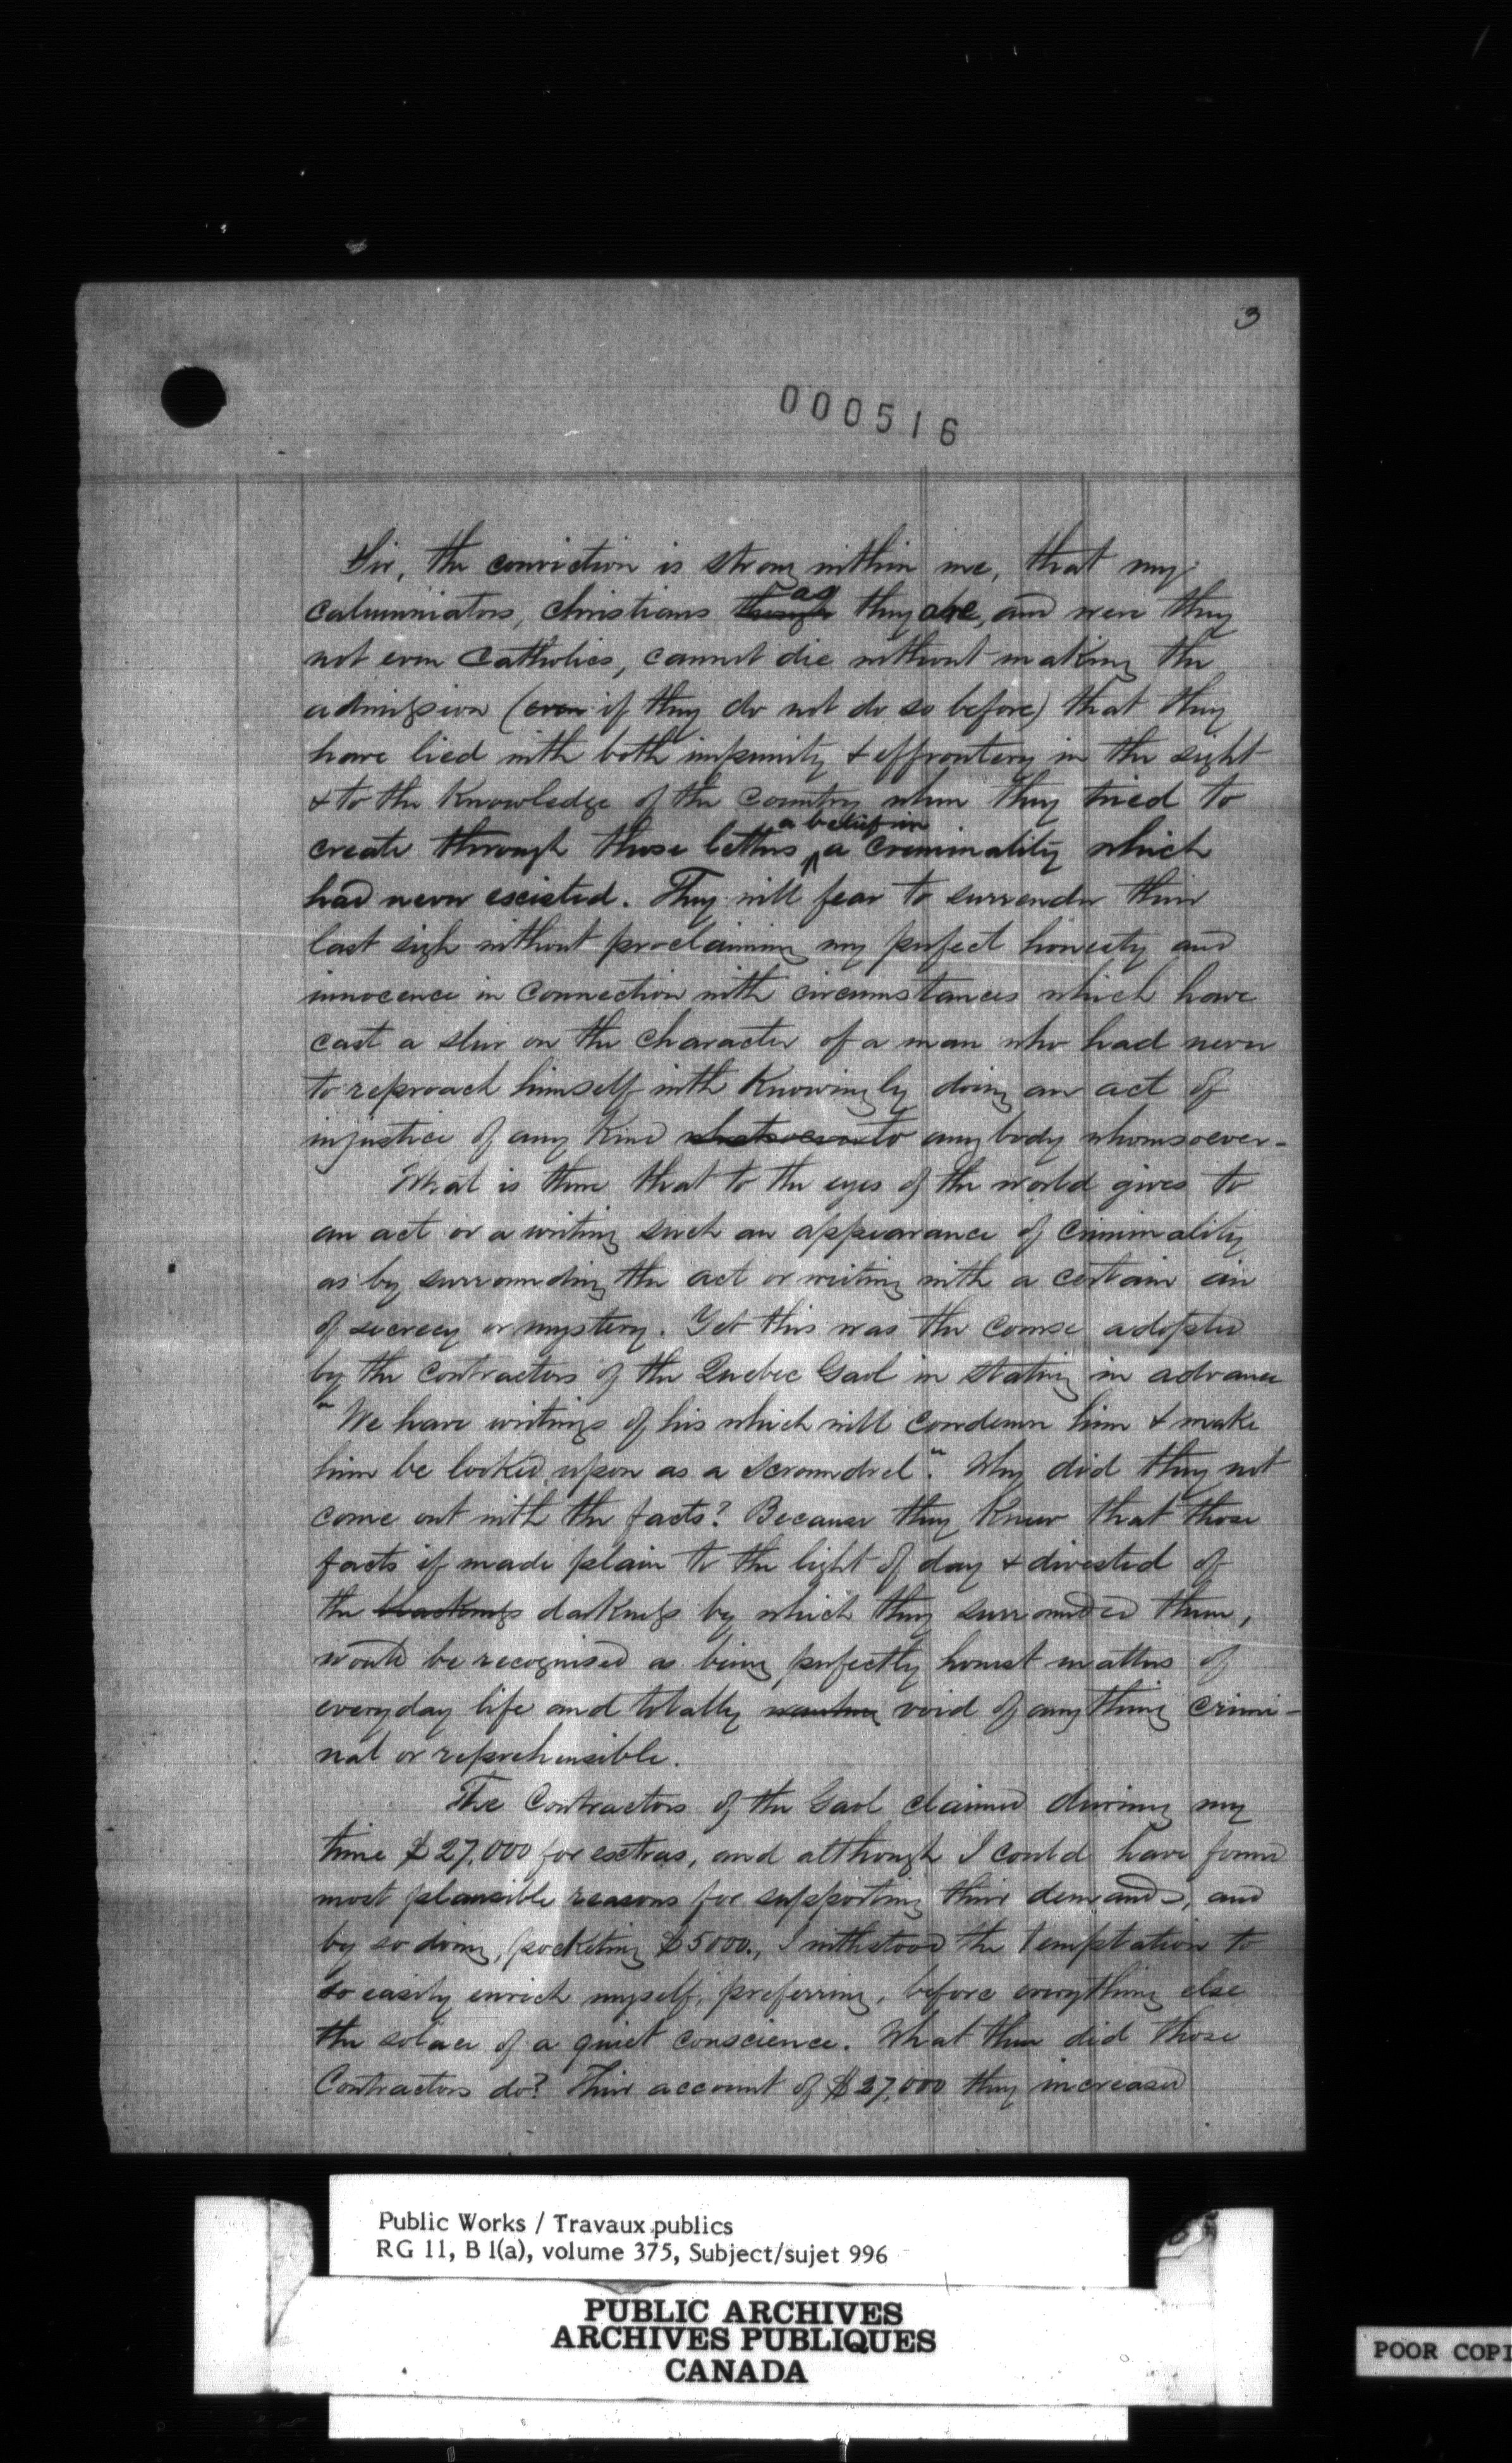 3
000516
Sir, the conviction is strong within me, that my
calumniators, Christians as they are, and were they
not even Catholics, cannot die without making the
admission (even if they do not do so before) that they
have lied with both impunity & effrontery in the sight
& to the Knowledge of the Country when they tried to
create through those letters a belief in a criminality which
had never existed. They will fear to surrender their
last sigh without proclaiming my perfect honesty and
innocence in connection with circumstances which have
cast a slur on the character of a man who had never
to reproach himself with Knowingly doing an act of
injustice of any Kind whatsoever to anybody whomsoever-
What is there that to the eyes of the world gives to
an act or a writing such an appearance of criminality
as by surrounding the act or writing with a certain air
of secrecy or mystery. Yet this was the course adopted
by the Contractors of the Quebec Gaol in stating in advance
"We have writings of his which will condemn him & make
him be looked upon as a Scroundrel". Why did they not
come out with the facts? Because they Knew that those
facts if made plain to the light of day & divested of
the blackness darkness by which they surrounded them,
would be recognised as being perfectly honest matters of
everyday life and totally void of anything crimi-
nal or reprehensible.
The Contractors of the Gaol claimed during my
time $27,000 for extras, and although I could have found
most plausible reasons for supporting their demands, and
by so doing, pocketing $5000., I withstood the temptation to
so easily enrich myself, preferring, before everything else
the solace of a quiet conscience. What then did those
Contractors do? Their account of $27,000 they increased
Public Works / Travaux publics
RG 11, B 1(a), volume 375, Subject/sujet 996
PUBLIC ARCHIVES
ARCHIVES PUBLIQUES
CANADA
POOR COPI